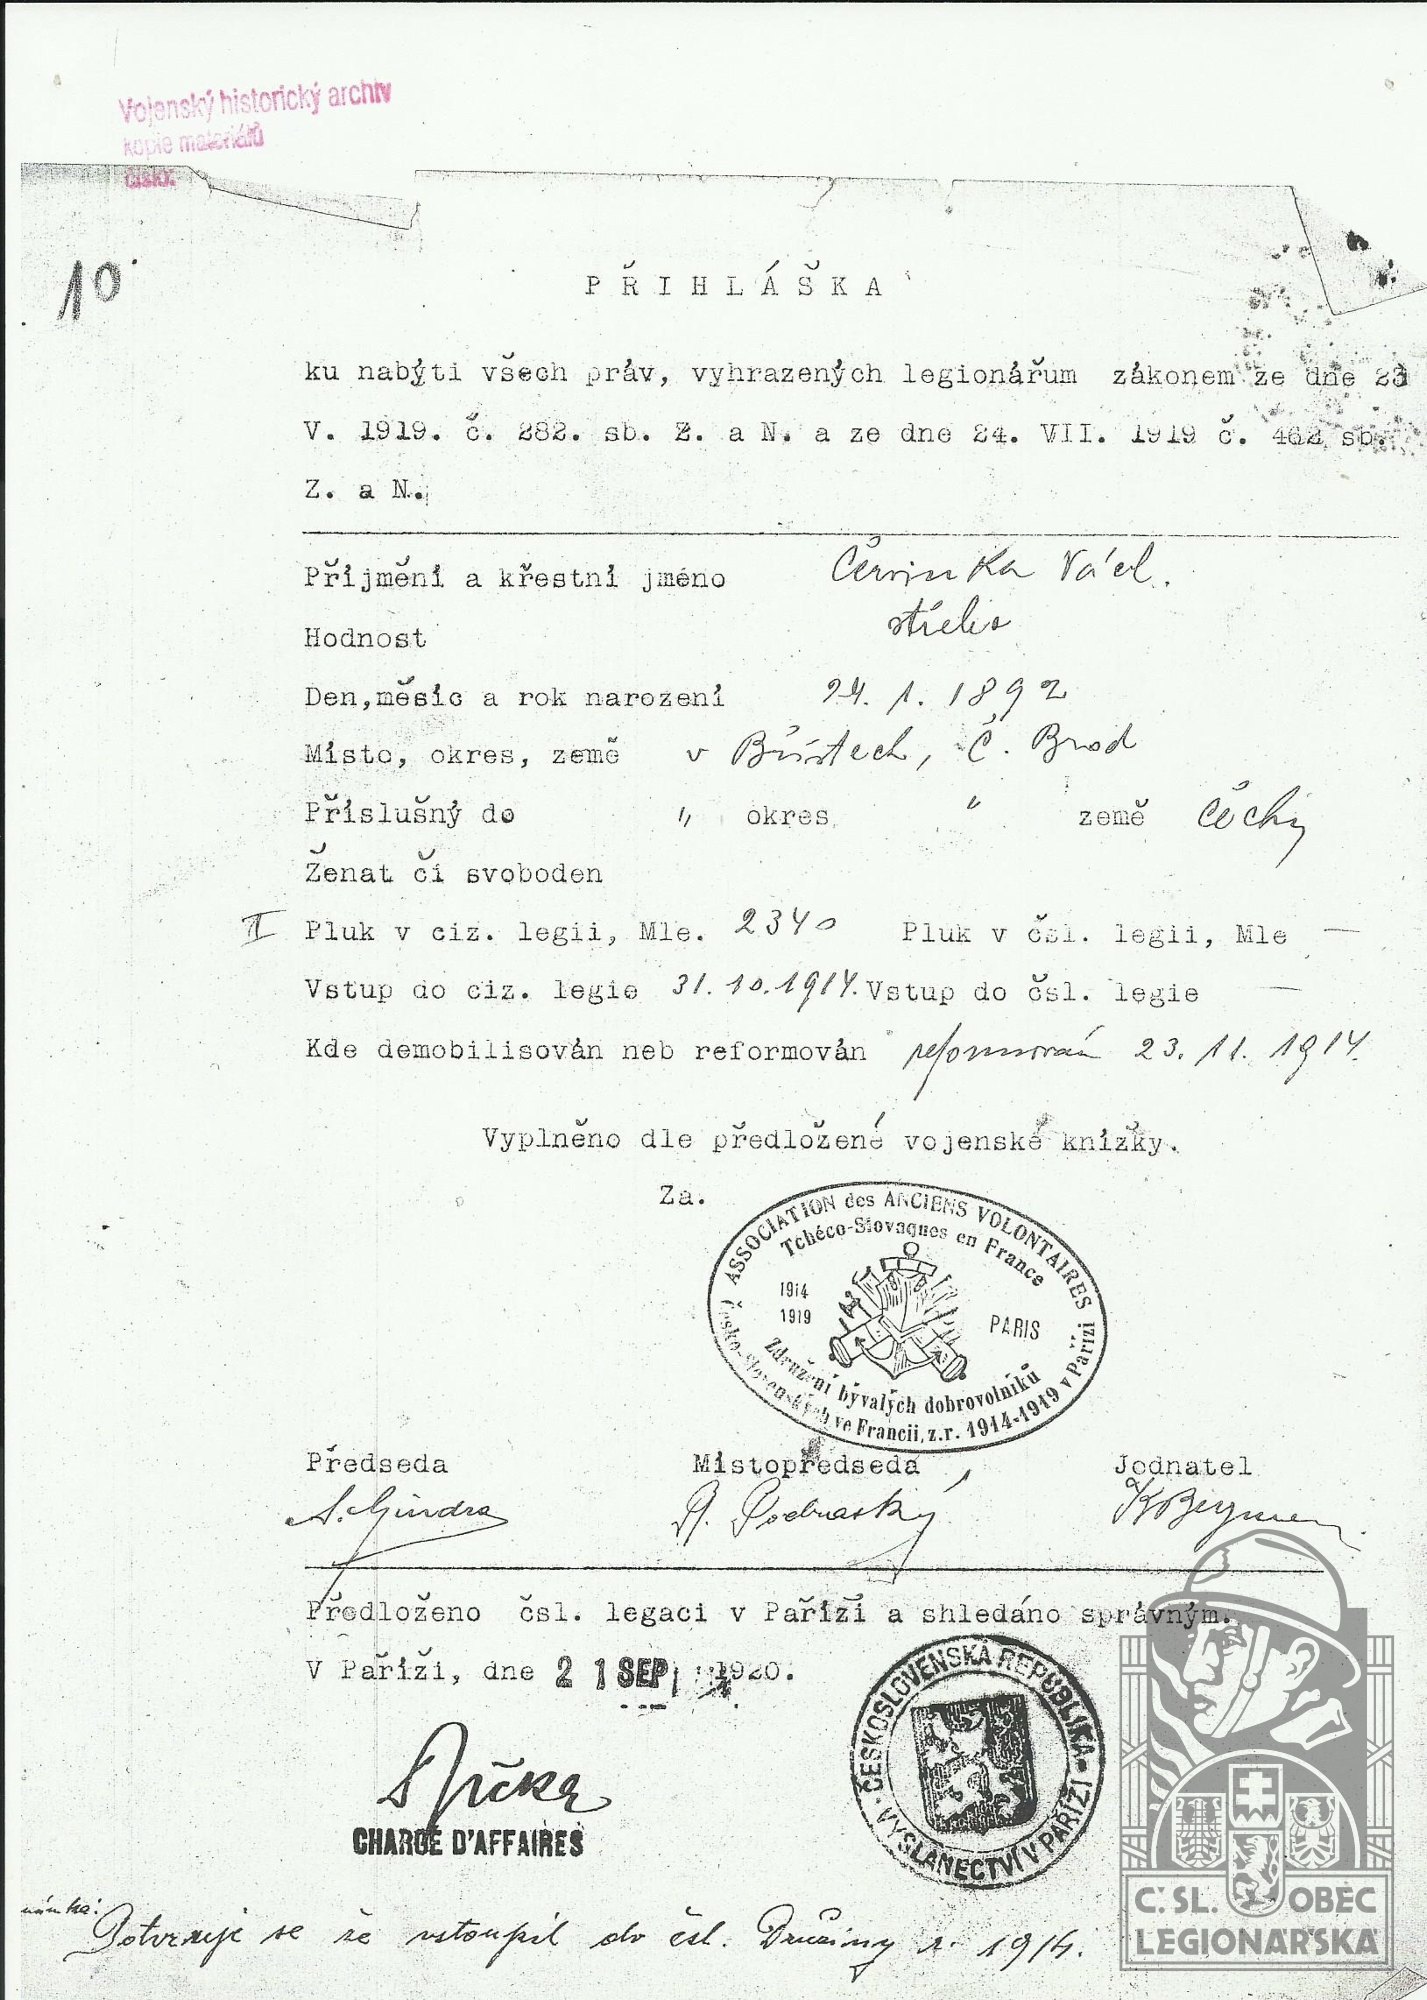 Vojenský historický archiv
kopie materiálů
10
PŘIHLÁŠKA
ku nabýti všech práv, vyhrazených legionářum zákonem ze dne 23
V. 1919. č. 282. sb. Z. a N. a ze dne 24. VII. 1919 č. 462 sb.
Z. a N.
Příjmění a křestní jméno Červinka Václ.
Hodnost střelec
Den, měsíc a rok narození 24. 1. 1892
Místo, okres, země v , Č. Brod
Příslušný do " okres " země Čechy
Ženat čí svoboden
II Pluk v ciz. legii, Mle. 2340 Pluk v čsl. legii, Mle —
Vstup do ciz. legie 31. 10. 1914. Vstup do čsl. legie —
Kde demobilisován neb reformován reformován 23. 11. 1914.
Vyplněno dle předložené vojenské knížky.
Za.
ASSOCIATION des ANCIENS VOLONTAIRES
Tchéco-Slovaques en France
1914
1919
PARIS
Združení bývalých dobrovolníků
Česko-Slovenských ve Francii, z.r. 1914-1919 v Paříži
Předseda Místopředseda Jednatel
Předloženo čsl. legaci v Paříži a shledáno správným.
V Paříži, dne 21 SEP 1920.
ČESKOSLOVENSKÁ REPUBLIKA
VYSLANECTVÍ V PAŘÍŽI
CHARGÉ D'AFFAIRES
Potvrzuje se že vstoupil do čsl. Družiny r. 1914.
Č.SL. OBEC
LEGIONÁŘSKÁ